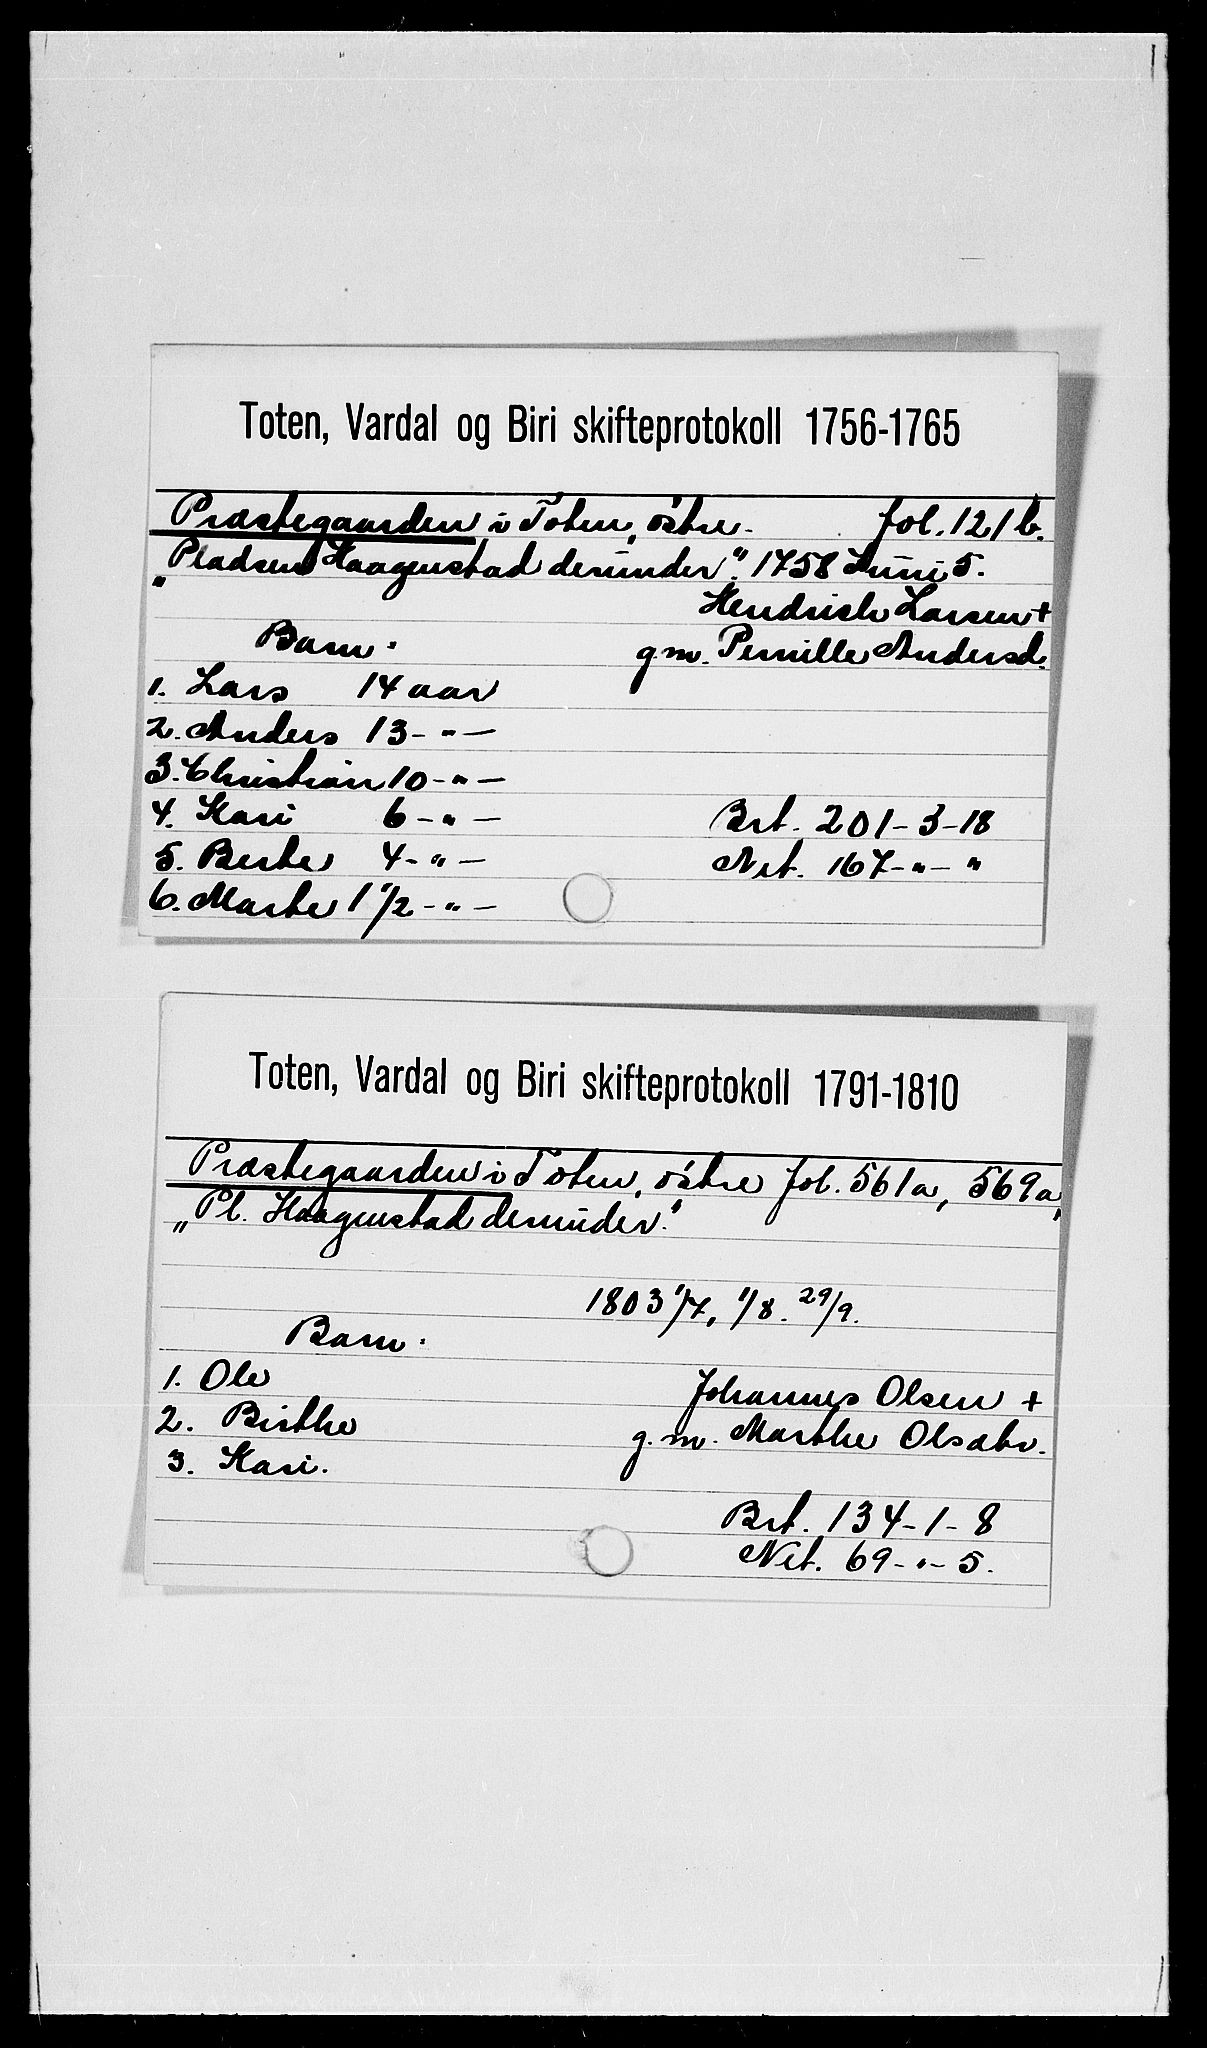 Toten, Vardal og Biri skifteprotokoll 1756-1765
Præstegaarden i Toten, østre. fol. 121 b.
"Pladsen Haagenstad derunder". 1758 Juni 5.
Hendrich Larsen +
Barn: g.m. Pernille Andersd.
1. Lars 14 aar
2. Anders 13 - " -
3. Christian 10 - " -
4. Kari 6 - " - Brt. 201 - 3 - 18
5. Berte 4 - " - Net. 167 - " - "
6. Marte 1 1/2 - " -
Toten, Vardal og Biri skifteprotokoll 1791-1810
Præstegaarden i Toten, østre fol. 561a, 569a,
"Pl. Haagenstad derunder."
1803 1/7, 1/8. 29/9.
Barn:
1. Ole Johannes Olsen +
2. Birthe g.m. Marthe Olsdtr.
3. Kari.
Brt. 134 - 1 - 8
Net. 69 - " - 5.